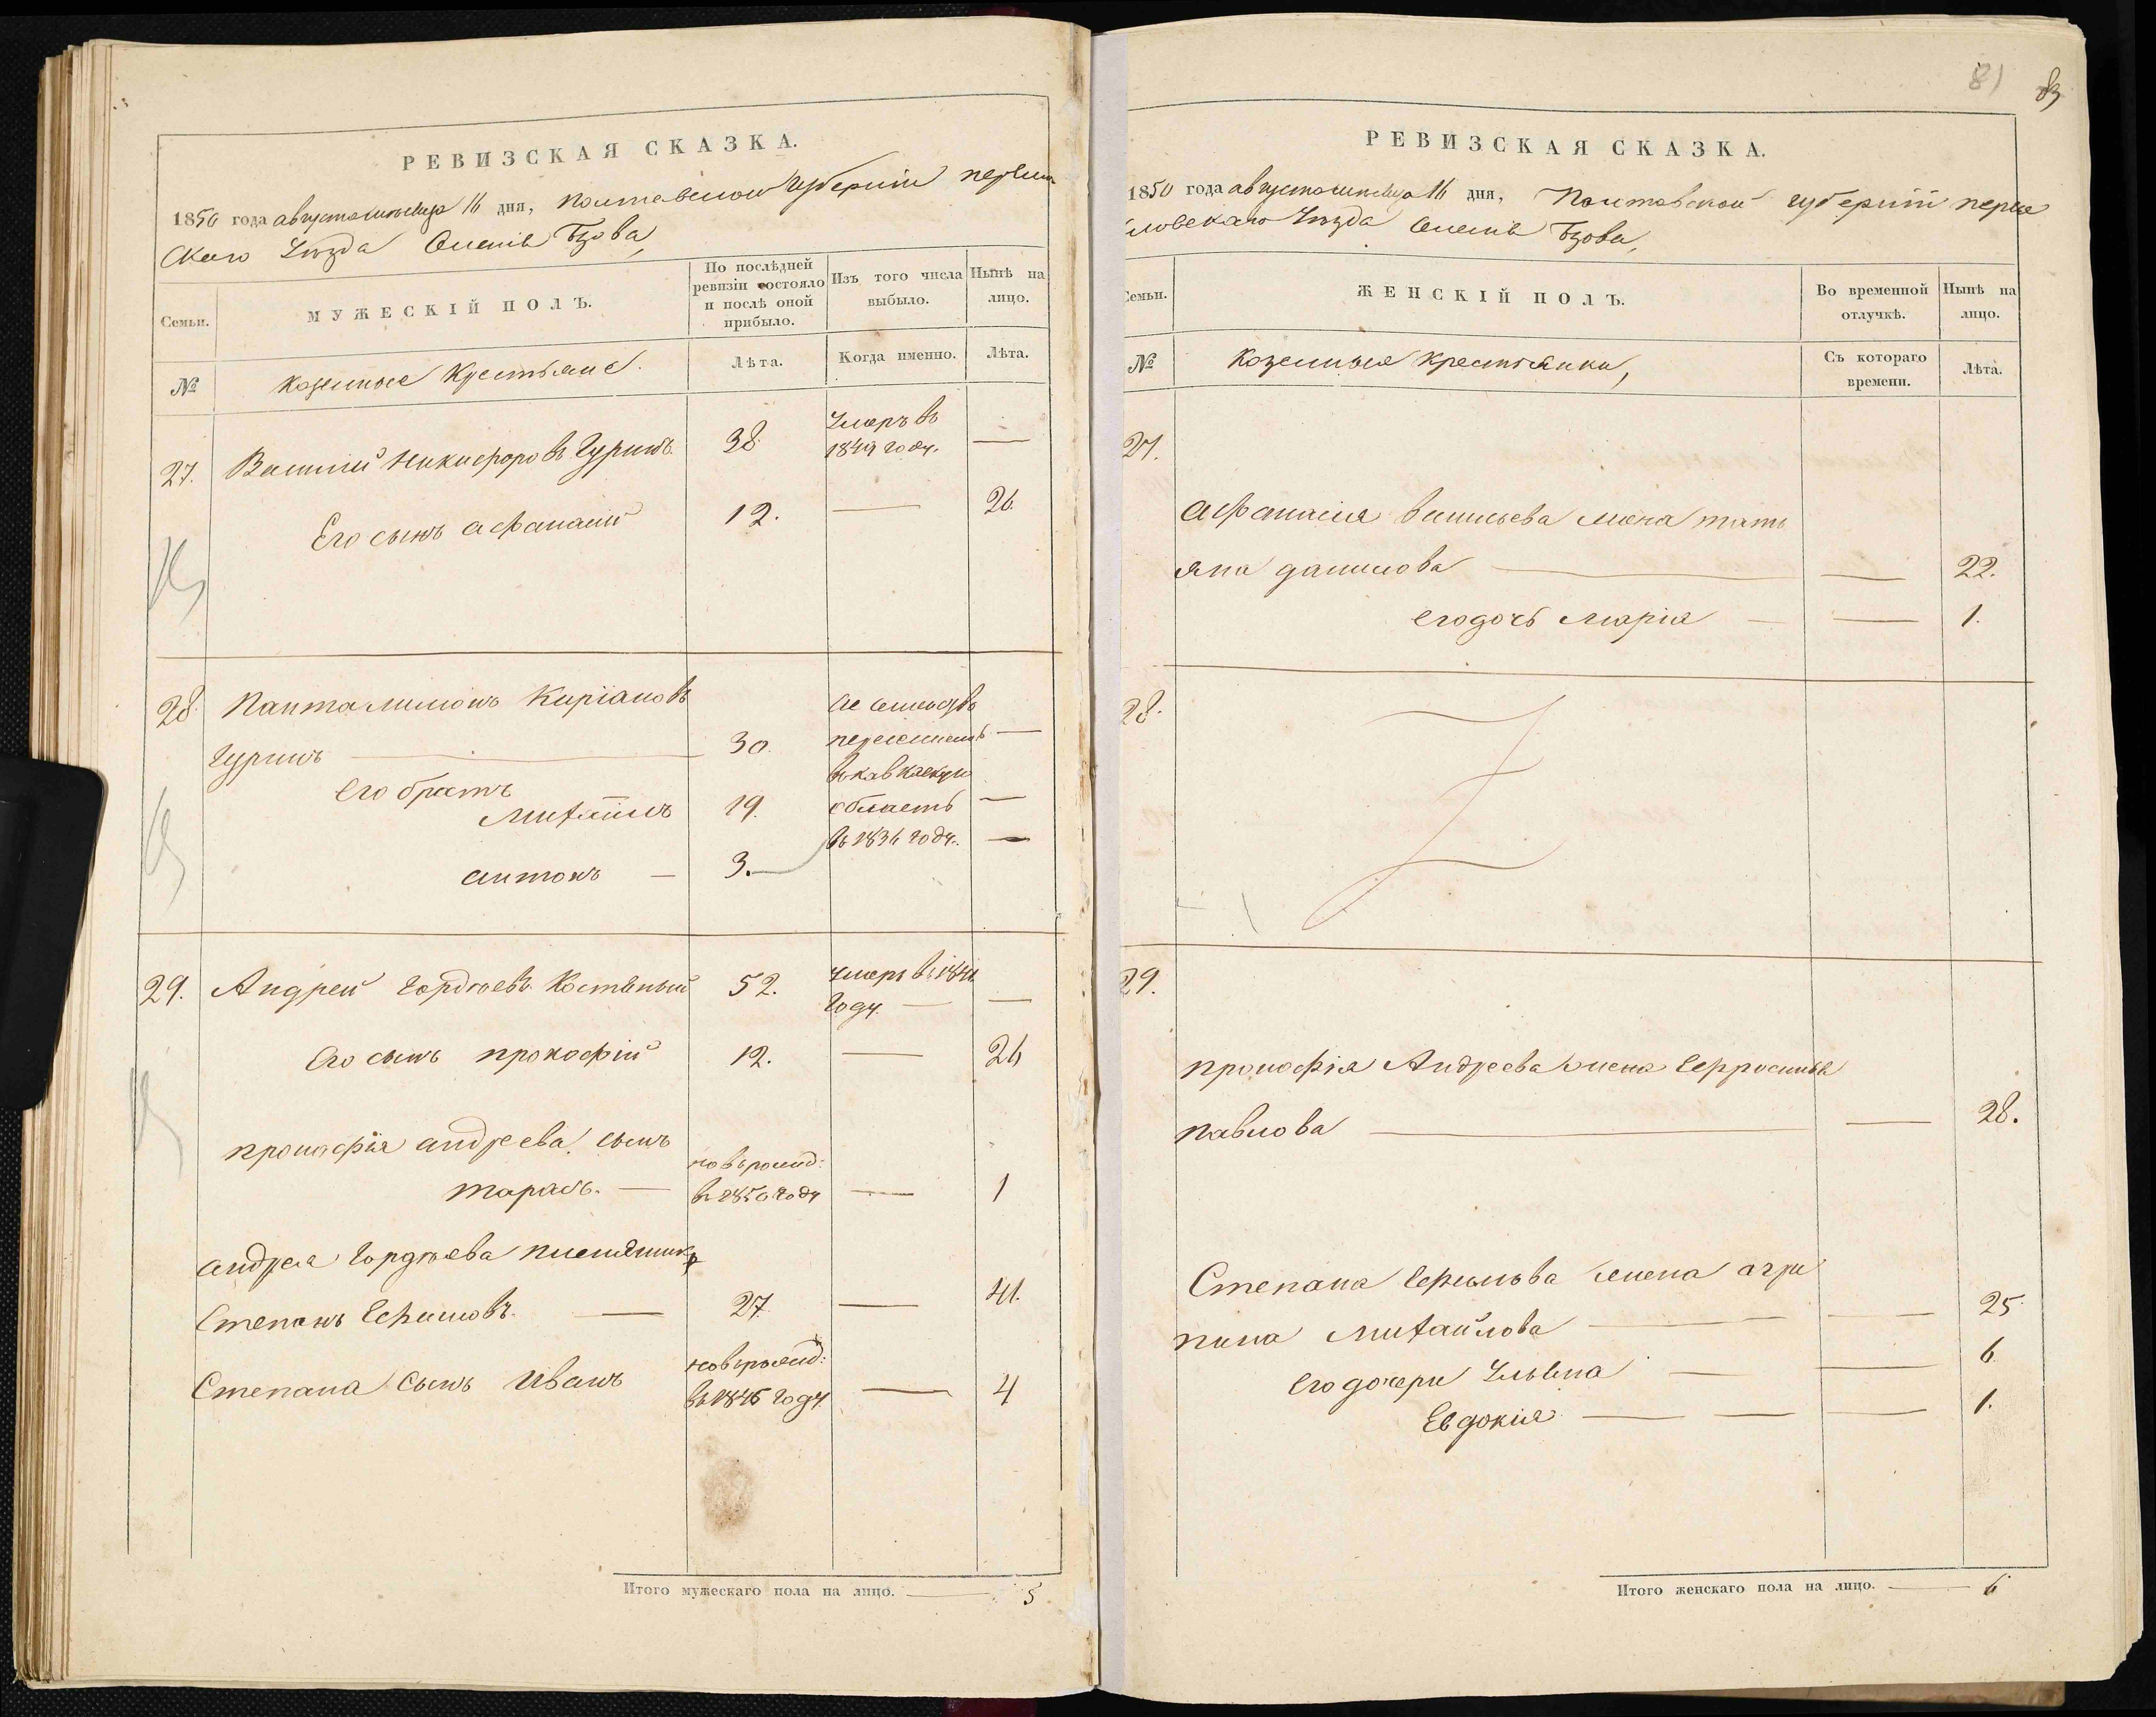 РЕВИЗСКАЯ СКАЗКА.
1850 года августа месяца 16 дня, Полтавской Губернии переяс
скаго Уѣзда Бзова,
Семьи.
МУЖЕСКІЙ ПОЛЪ.
По послѣдней ревизіи состояло и послѣ оной прибыло.
Изъ того числа выбыло.
Нынѣ на лицо.
№
Казенные Крестьяне.
Лѣта.
Когда именно.
Лѣта.
27. Василій Никифоровъ Гуринъ. 38. Умеръ въ 1849 году. —
Его сынъ Афанасій 12. — 26.
28. Панталимонъ Кириановъ
Гуринъ — 30. переселенъ —
Его братъ въ кавказкую
Михаилъ 19. область —
въ 1836 году. —
антонъ — 3.
29. Андрей Гордѣевъ Костыный 52. умеръ въ 1841
году. — —
Его сынъ прокофій 12. — 26
прокофія андреева сынъ
тарасъ. — новорожд: въ 1850 году — 1
андрея Гордѣева племянникъ
Степанъ Ефимовъ. — 27. — 41.
Степана сынъ Иванъ новорожд: въ 1846 году — 4
Итого мужескаго пола на лицо. — 5
81
83
РЕВИЗСКАЯ СКАЗКА.
1850 года августа месяца 16 дня, Полтавской губерніи перея
словскаго Уѣзда Бзова,
Семьи.
ЖЕНСКІЙ ПОЛЪ.
Во временной отлучкѣ.
Нынѣ на лицо.
№
Казенные крестьянки,
Съ котораго времени.
Лѣта.
27.
Афанасія васильева жена тать
яна данилова — — 22.
его дочь Марія — — 1.
28.
29.
прокофія Андреева жена Ефросинія
павлова — — 28.
Степана Ефимова жена агри
пина Михайлова — — 25.
его дочери Ульяна — — 6.
Евдокія — — — 1.
Итого женскаго пола на лицо. — 6